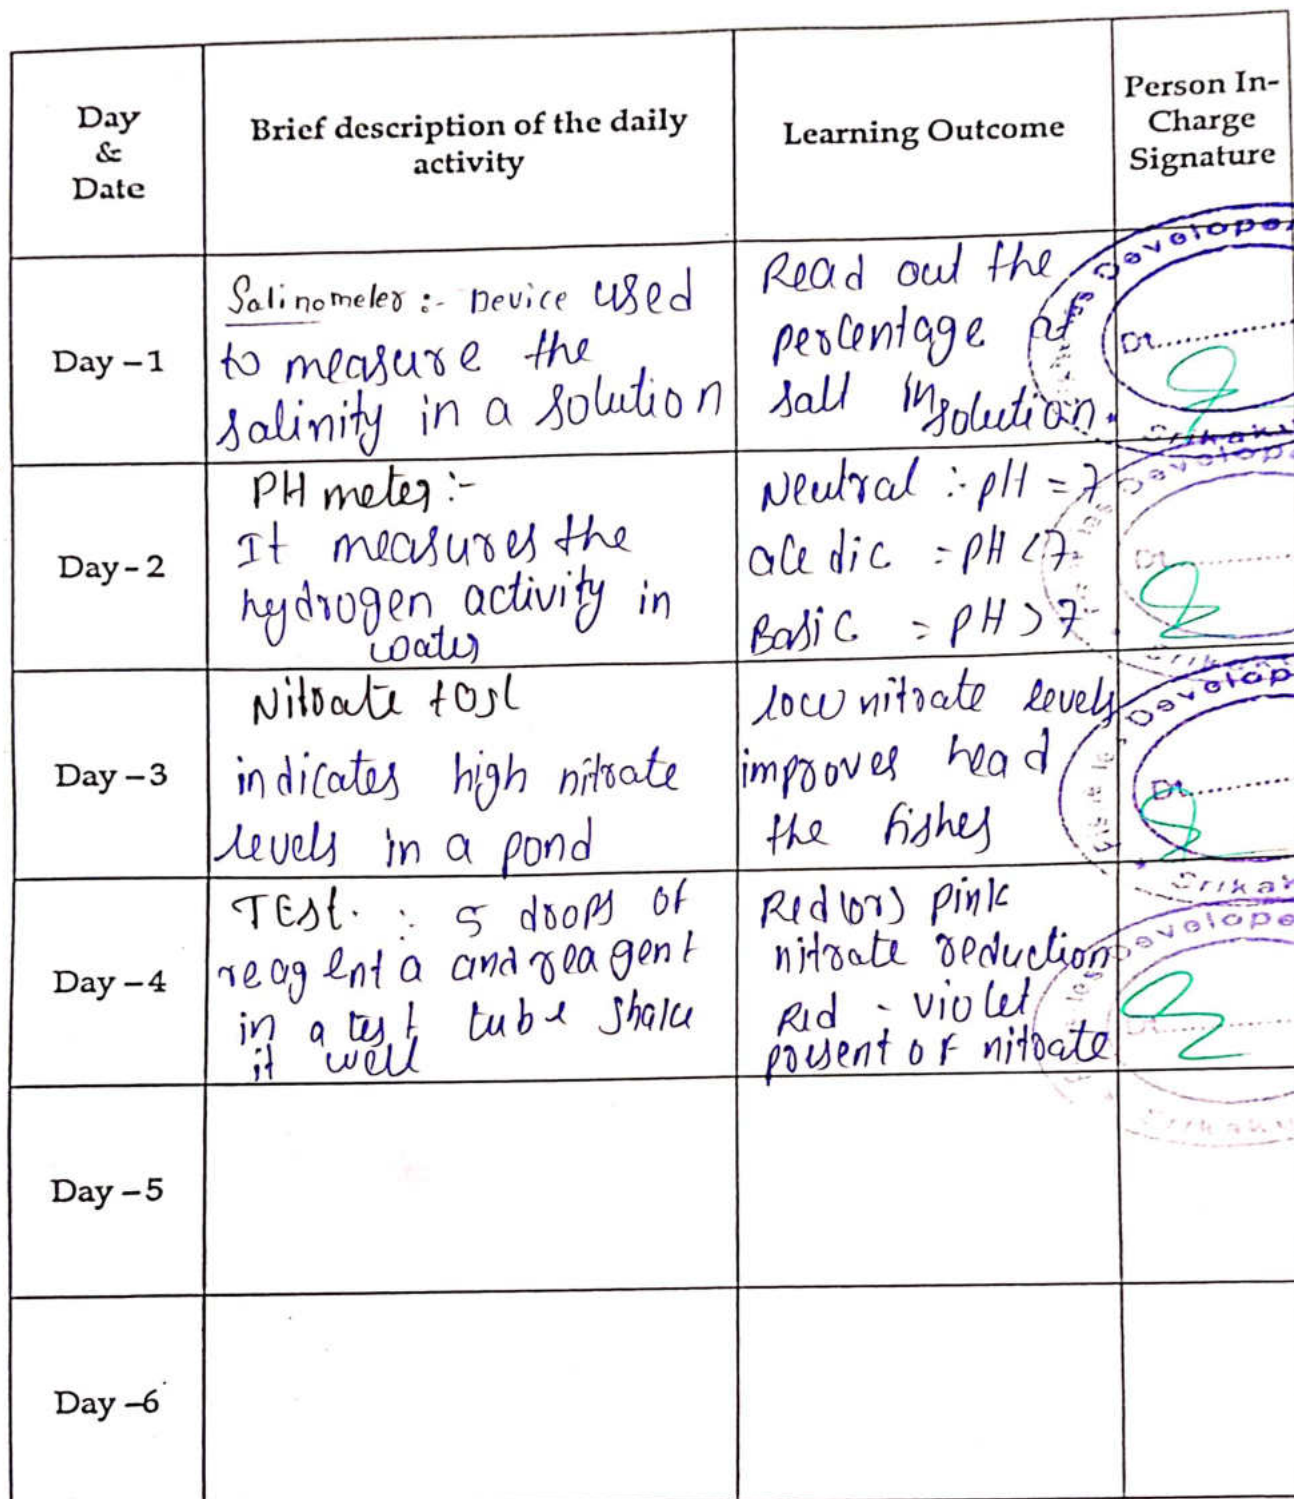 Day
&
Date
Brief description of the daily
activity
Learning Outcome
Person In-
Charge
Signature
Day – 1
Salinometer :- Device used
to measure the
salinity in a solution
Read out the
percentage of
salt in solution.
Developer
Dt..............
Srikaku
Day - 2
PH meter :-
It measures the
hydrogen activity in
water
Neutral :- pH = 7
ace dic = pH < 7
Basic = pH > 7
Developer
Dt..............
Srikaku
Day – 3
Nitrate test
indicates high nitrate
levels in a pond
low nitrate levels
improves head
the fishes
Developer
Dt..............
Srikaku
Day – 4
TEST. : 5 drops of
reagent a and reagent
in a test tube shake
it well
Red (or) pink
nitrate reduction
Red - violet
present of nitrate
Developer
Dt..............
Srikaku
Day – 5
Day –6